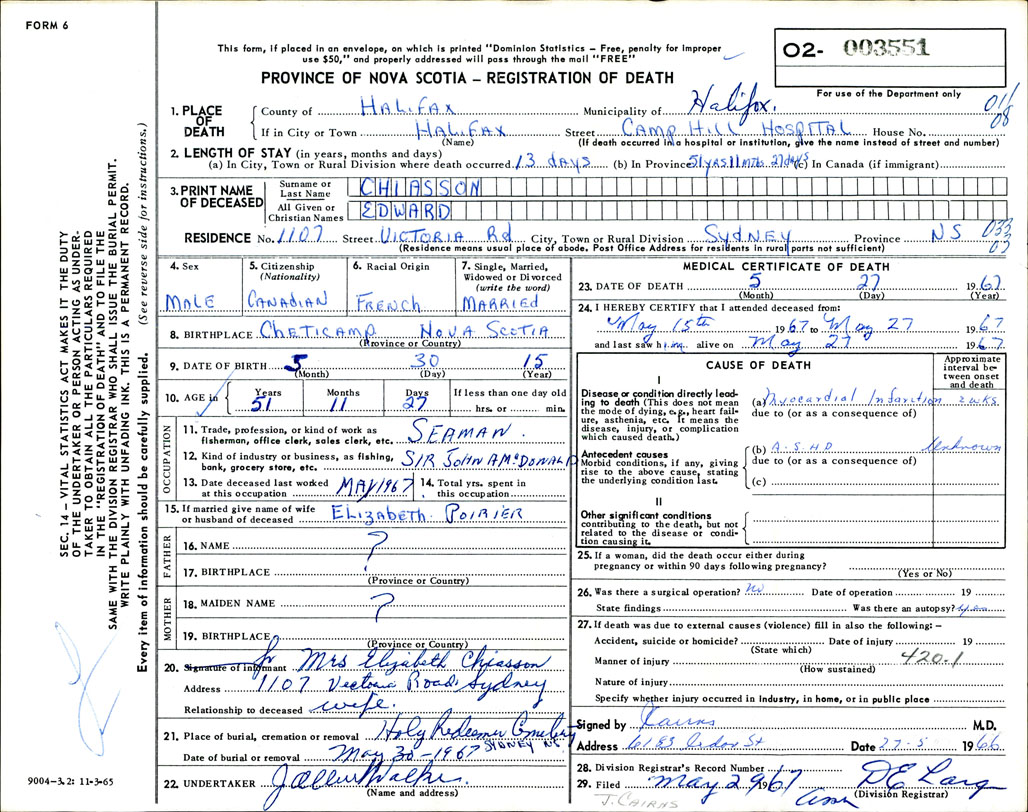 FORM 6
This form, if placed in an envelope, on which is printed "Dominion Statistics – Free, penalty for improper
use $50," and properly addressed will pass through the mail "FREE"
O2- 003551
For use of the Department only
PROVINCE OF NOVA SCOTIA – REGISTRATION OF DEATH
011
08
1. PLACE OF DEATH
County of HALIFAX Municipality of Halifax.
If in City or Town HALIFAX Street CAMP HILL HOSPITAL House No.
(Name) (If death occurred in a hospital or institution, give the name instead of street and number)
2. LENGTH OF STAY (in years, months and days)
(a) In City, Town or Rural Division where death occurred 13 days (b) In Province 51 yrs 11 mths 27 days (c) In Canada (if immigrant)
3. PRINT NAME OF DECEASED
Surname or Last Name CHIASSON
All Given or Christian Names EDWARD
RESIDENCE No. 1107 Street VICTORIA Rd City, Town or Rural Division SYDNEY Province NS
033
03
(Residence means usual place of abode. Post Office Address for residents in rural parts not sufficient)
4. Sex
MALE
5. Citizenship (Nationality)
CANADIAN
6. Racial Origin
FRENCH
7. Single, Married, Widowed or Divorced (write the word)
MARRIED
8. BIRTHPLACE CHETICAMP NOVA SCOTIA
(Province or Country)
9. DATE OF BIRTH 5 30 15
(Month) (Day) (Year)
10. AGE in
Years Months Days If less than one day old
51 11 27 hrs. or min.
OCCUPATION
11. Trade, profession, or kind of work as
fisherman, office clerk, sales clerk, etc. SEAMAN.
12. Kind of industry or business, as fishing,
bank, grocery store, etc. SIR JOHN A McDONALD
13. Date deceased last worked
at this occupation MAY 1967
14. Total yrs. spent in
this occupation
15. If married give name of wife
or husband of deceased ELIZABETH POIRIER
FATHER
16. NAME ?
17. BIRTHPLACE
(Province or Country)
MOTHER
18. MAIDEN NAME ?
19. BIRTHPLACE
(Province or Country)
20. Signature of informant Mrs Elizabeth Chiasson
Address 1107 Vectoria Road Sydney
Relationship to deceased wife.
21. Place of burial, cremation or removal Holy Redeemer Cemetery
SYDNEY NS
Date of burial or removal May 30 – 1967
22. UNDERTAKER
(Name and address)
MEDICAL CERTIFICATE OF DEATH
23. DATE OF DEATH 5 27 1967
(Month) (Day) (Year)
24. I HEREBY CERTIFY that I attended deceased from:
May 15th 1967 to May 27 1967
and last saw him alive on May 27 1967
CAUSE OF DEATH
Approximate interval between onset and death
I
Disease or condition directly leading to death (This does not mean the mode of dying, e.g., heart failure, asthenia, etc. It means the disease, injury, or complication which caused death.)
(a) Myocardial Infarction 2 wks.
due to (or as a consequence of)
Antecedent causes
Morbid conditions, if any, giving rise to the above cause, stating the underlying condition last.
(b) A.S.H.D Unknown
due to (or as a consequence of)
(c)
II
Other significant conditions
contributing to the death, but not related to the disease or condition causing it.
25. If a woman, did the death occur either during
pregnancy or within 90 days following pregnancy?
(Yes or No)
26. Was there a surgical operation? No Date of operation 19
State findings Was there an autopsy?
27. If death was due to external causes (violence) fill in also the following: –
Accident, suicide or homicide? Date of injury 19
(State which)
Manner of injury 420.1
(How sustained)
Nature of injury
Specify whether injury occurred in Industry, in home, or in public place
Signed by Cairns M.D.
Address 6183 St Date 27-5 1966
28. Division Registrar's Record Number
29. Filed May 29 1967
(Division Registrar)
J. CAIRNS
SEC. 14 – VITAL STATISTICS ACT MAKES IT THE DUTY
OF THE UNDERTAKER OR PERSON ACTING AS UNDER-
TAKER TO OBTAIN ALL THE PARTICULARS REQUIRED
IN THE "REGISTRATION OF DEATH" AND TO FILE THE
SAME WITH THE DIVISION REGISTRAR WHO SHALL ISSUE THE BURIAL PERMIT.
WRITE PLAINLY WITH UNFADING INK. THIS IS A PERMANENT RECORD.
Every item of information should be carefully supplied. (See reverse side for instructions.)
9004-3.2: 11-3-65